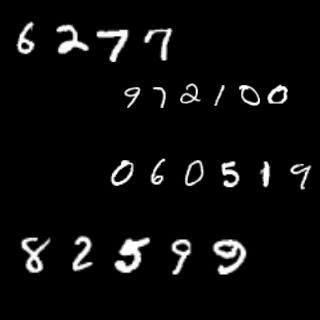 6277
972100
060519
82599